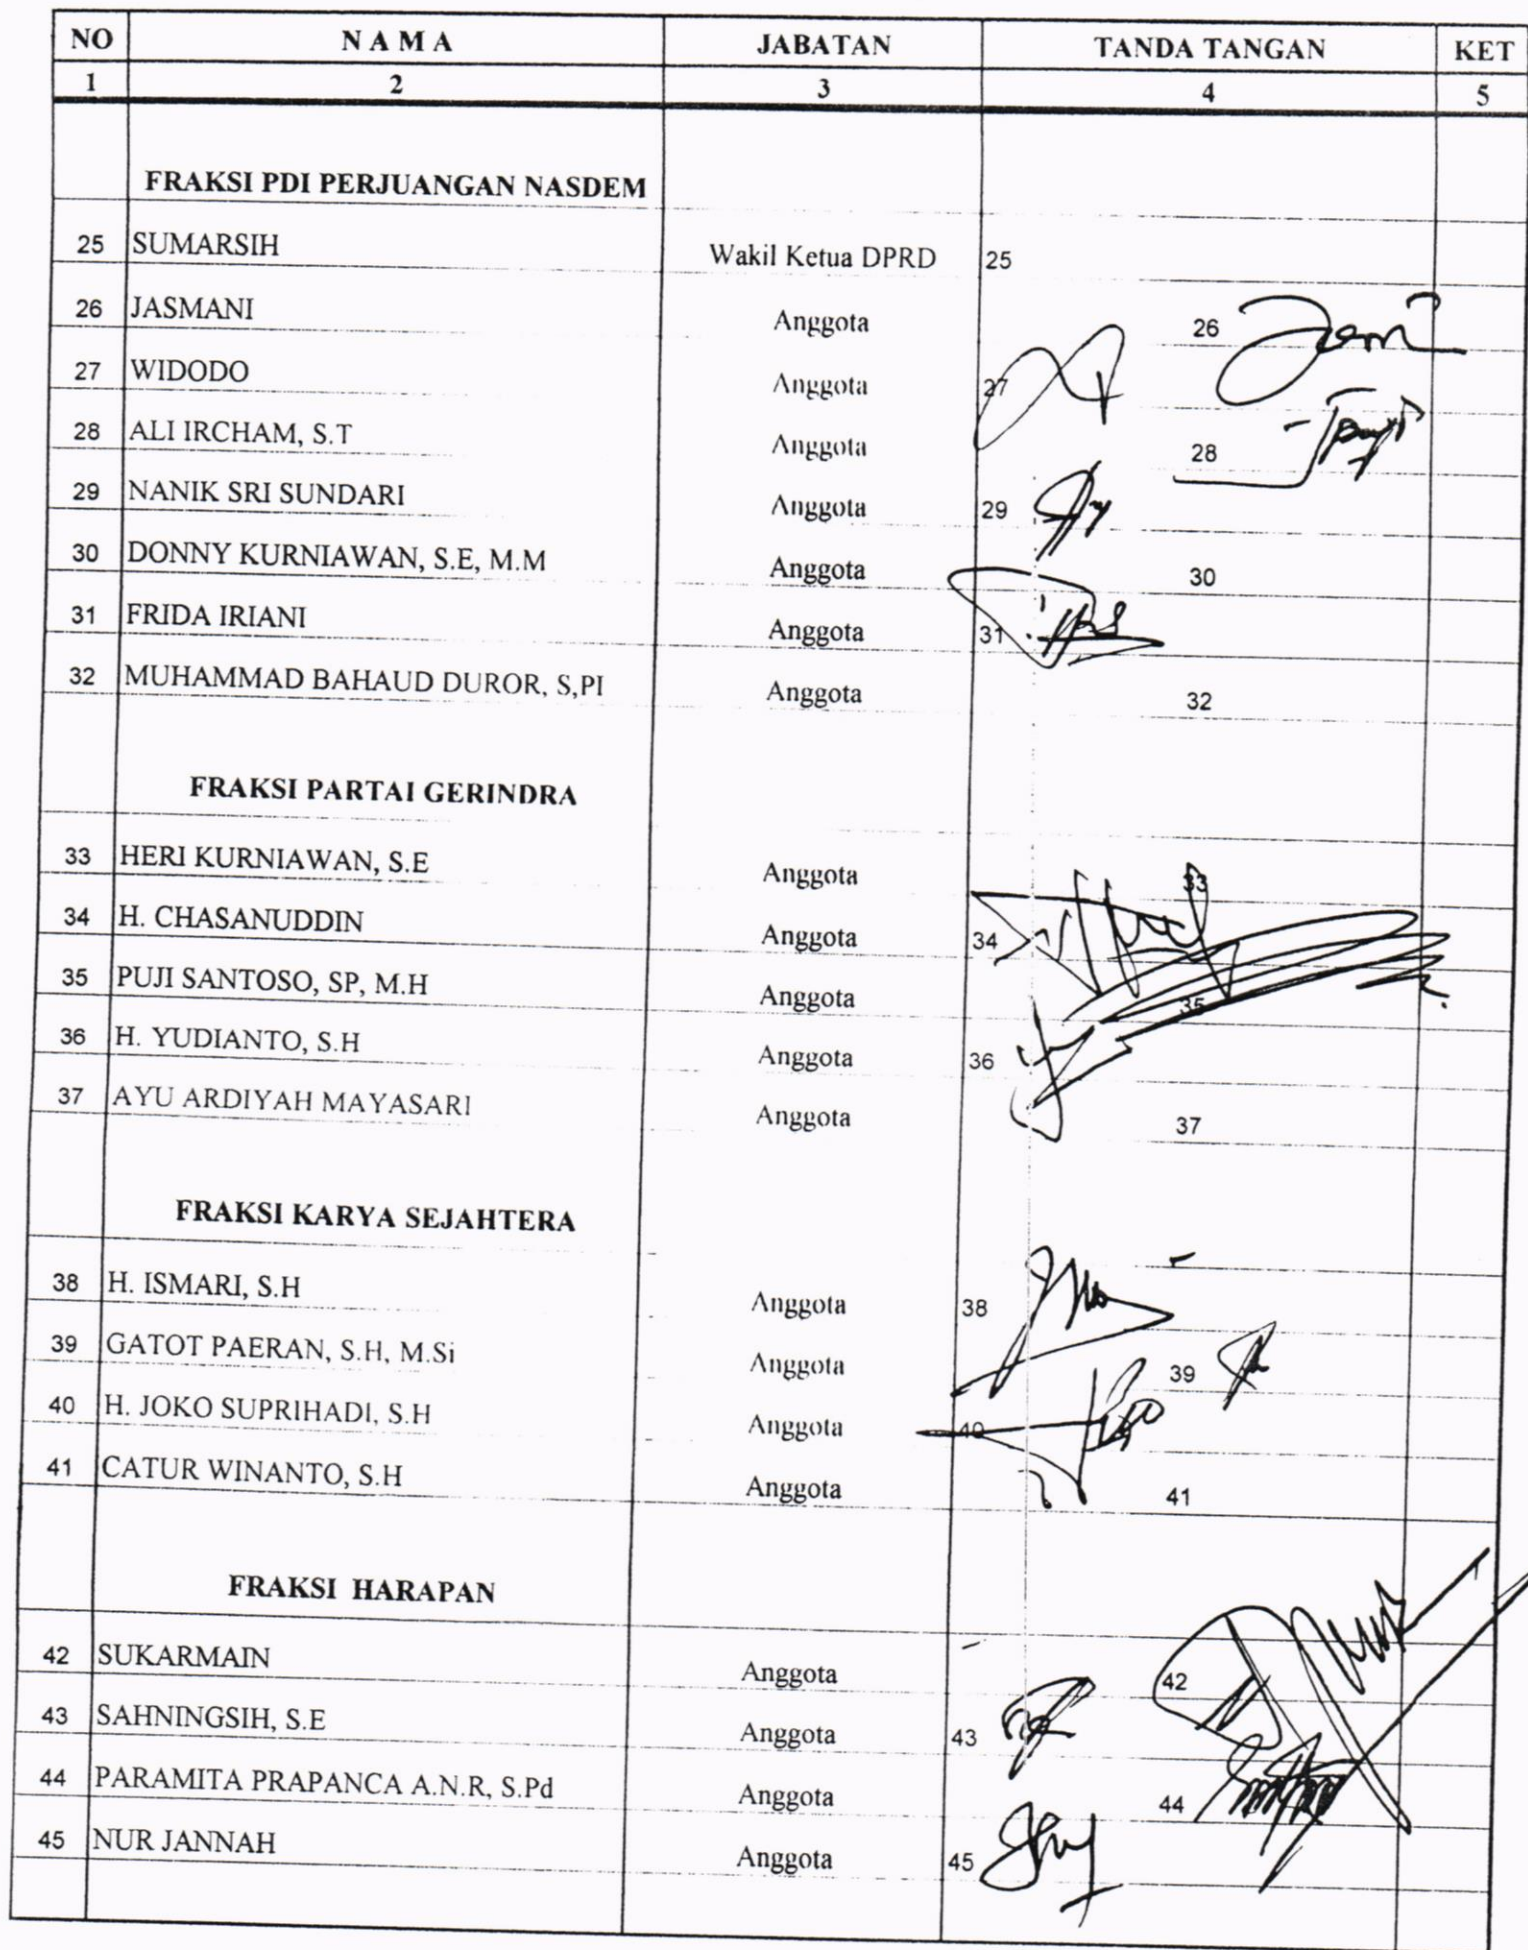 NO NAMA JABATAN TANDA TANGAN KET
1 2 3 4 5
FRAKSI PDI PERJUANGAN NASDEM
25 SUMARSIH Wakil Ketua DPRD 25
26 JASMANI Anggota 26
27 WIDODO Anggota 27
28 ALI IRCHAM, S.T Anggota 28
29 NANIK SRI SUNDARI Anggota 29
30 DONNY KURNIAWAN, S.E, M.M Anggota 30
31 FRIDA IRIANI Anggota 31
32 MUHAMMAD BAHAUD DUROR, S,PI Anggota 32
FRAKSI PARTAI GERINDRA
33 HERI KURNIAWAN, S.E Anggota 33
34 H. CHASANUDDIN Anggota 34
35 PUJI SANTOSO, SP, M.H Anggota 35
36 H. YUDIANTO, S.H Anggota 36
37 AYU ARDIYAH MAYASARI Anggota 37
FRAKSI KARYA SEJAHTERA
38 H. ISMARI, S.H Anggota 38
39 GATOT PAERAN, S.H, M.Si Anggota 39
40 H. JOKO SUPRIHADI, S.H Anggota 40
41 CATUR WINANTO, S.H Anggota 41
FRAKSI HARAPAN
42 SUKARMAIN Anggota 42
43 SAHNINGSIH, S.E Anggota 43
44 PARAMITA PRAPANCA A.N.R, S.Pd Anggota 44
45 NUR JANNAH Anggota 45